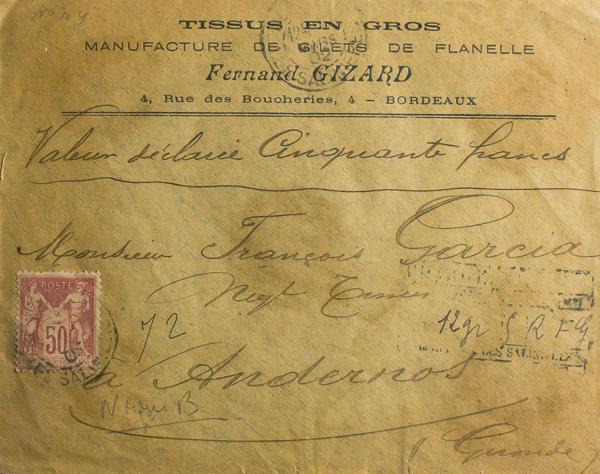 No 104
TISSUS EN GROS
MANUFACTURE DE GILETS DE FLANELLE
Fernand GIZARD
4, Rue des Boucheries, 4 - BORDEAUX
Valeur déclarée Cinquante francs
Monsieur François Garcia
Negt
POSTE
50
72
12gr
à Andernos
Gironde